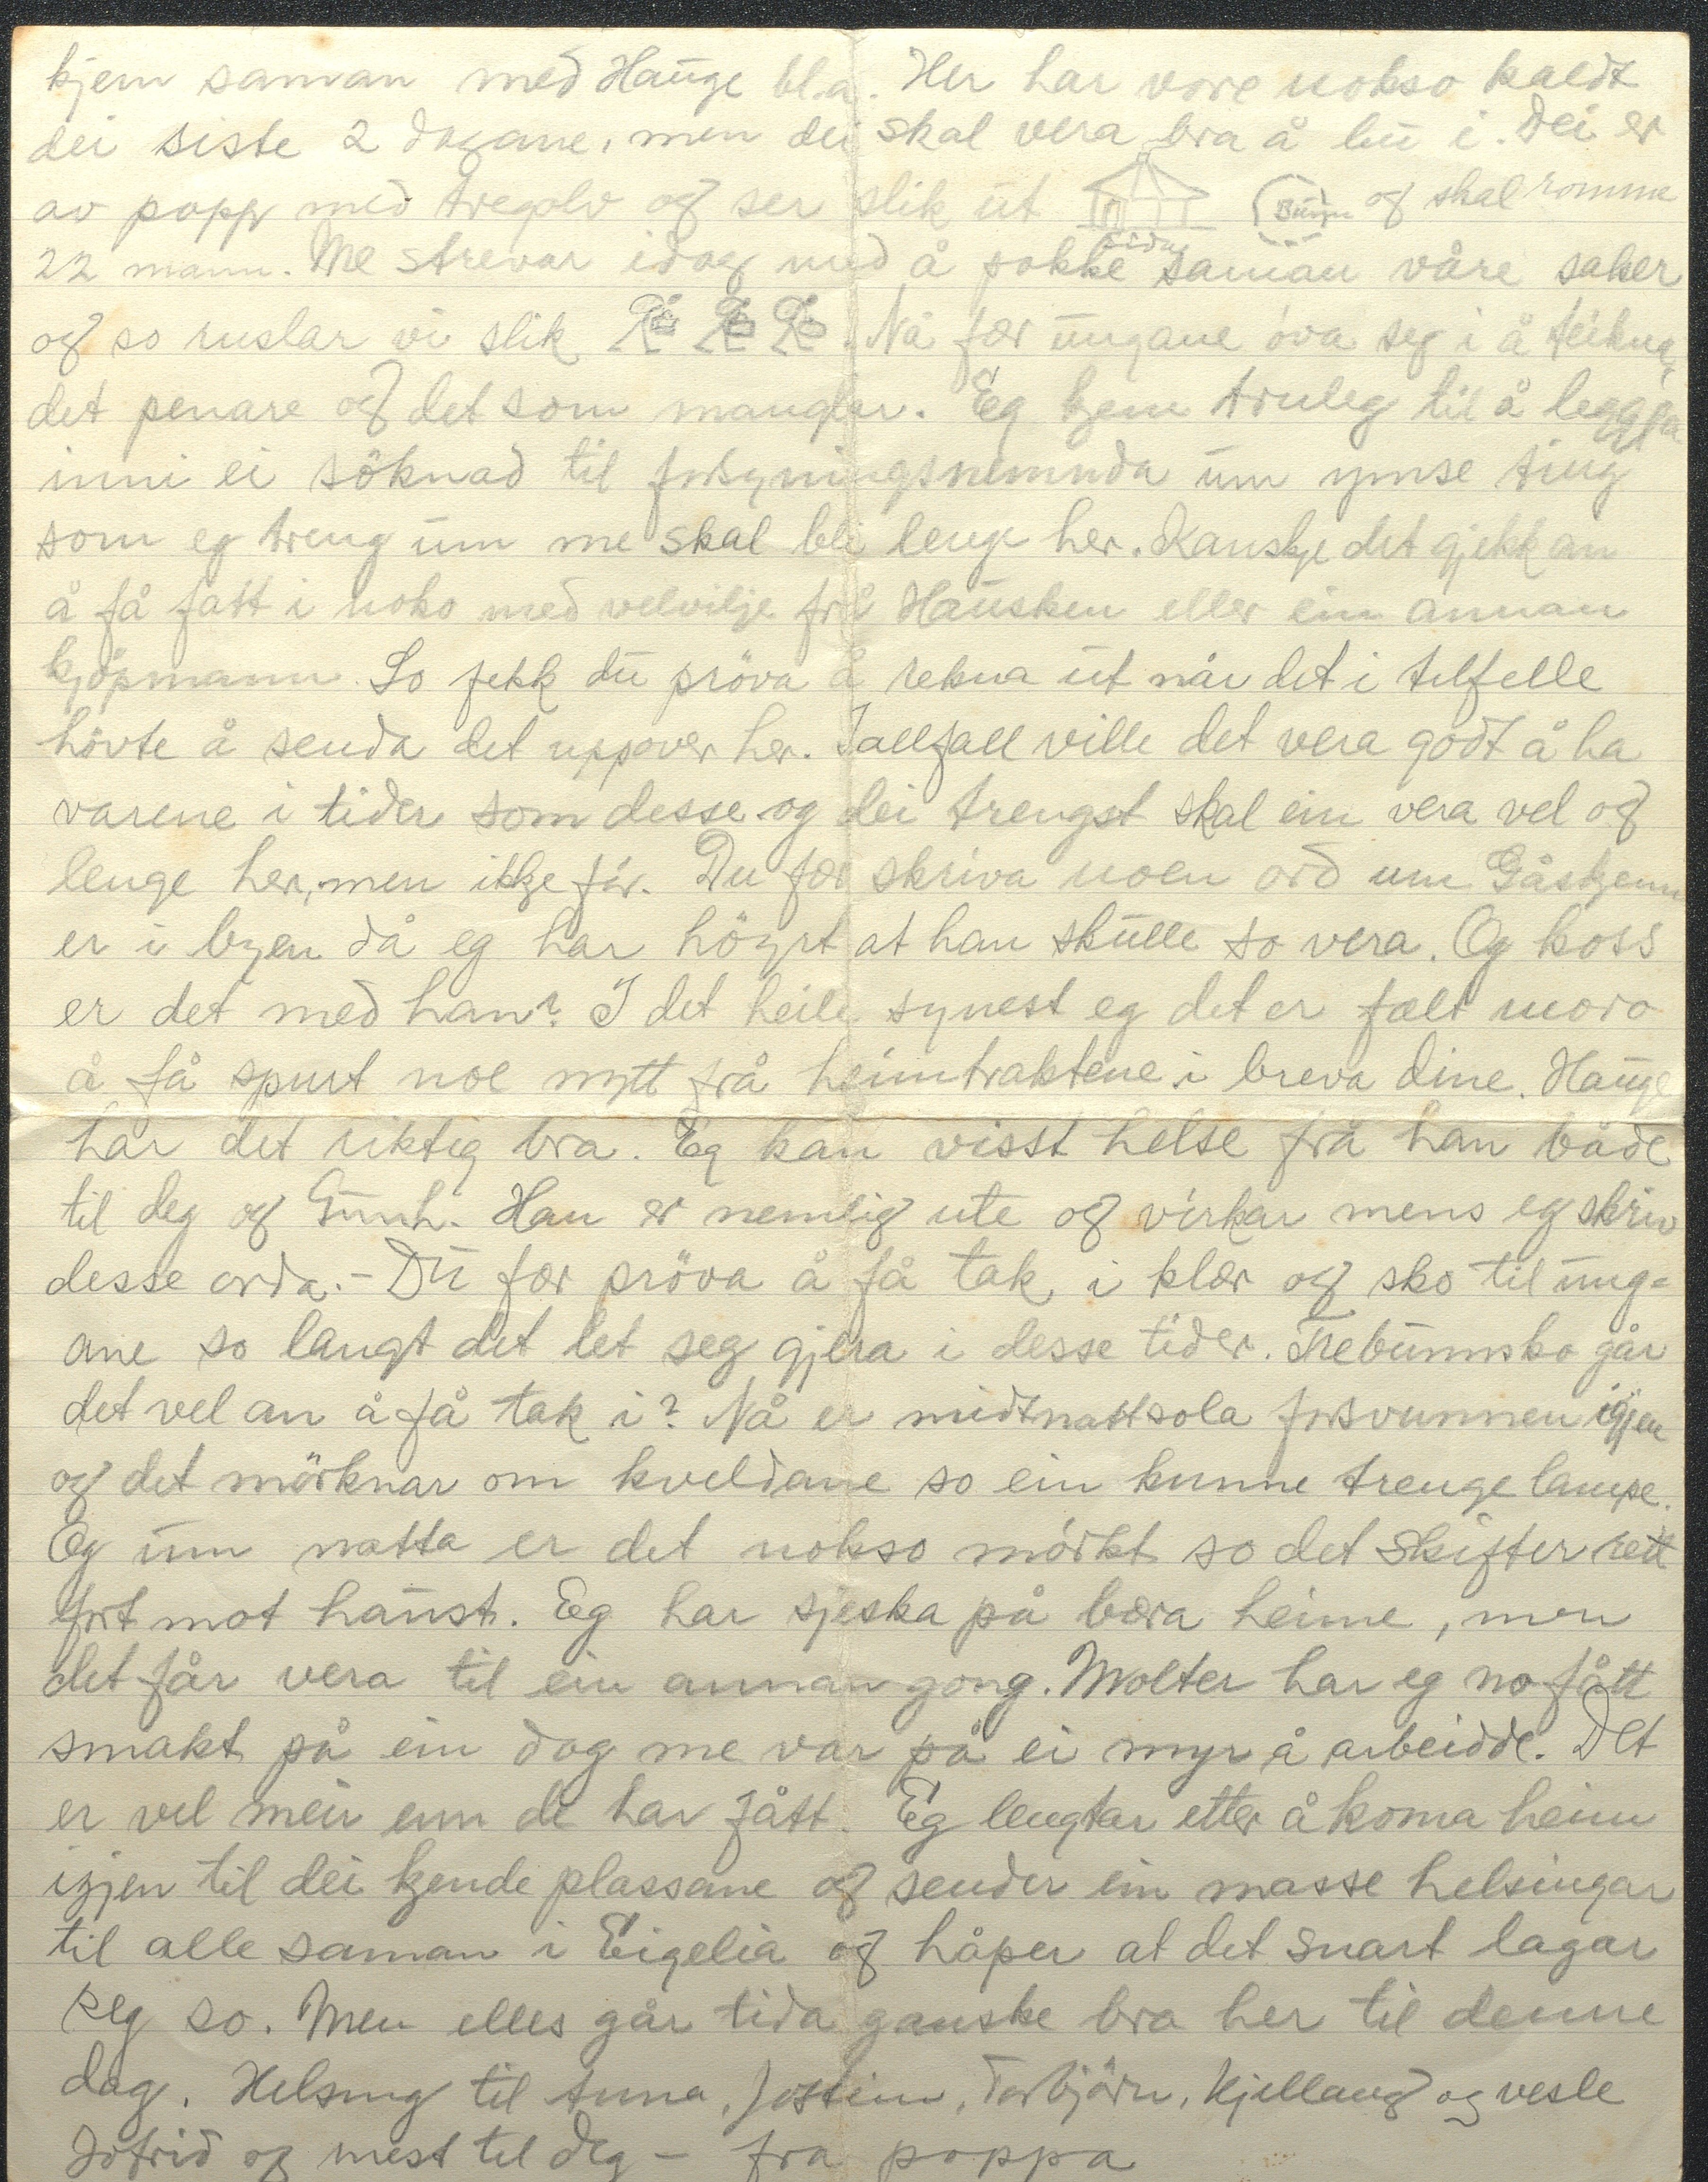 kjem saman med Hauge bl.a. Her har vore nokso kaldt
dei siste 2 dagane, men dei skal vera bra å bu i. Dei er
av papp med tregolv og ser slik ut og skal romme
22 mann. Me strevar idag med å pakke saman våre saker
og so ruslar vi slik. Nå får ungane öva seg i å teikna
det penare og det som manglar. Eg kjem truleg til å leggja
inni ei söknad til forsyningsnemnda um ymse ting
som eg treng um me skal bli lenge her. Kanskje det gjekk an
å få fatt i noko med velvilje frå Hausken eller ein annan
kjöpmann. So fekk du pröva å rekna ut når det i tilfelle
hövte å senda det uppover her. Iallfall ville det vera godt å ha
varene i tider som desse og dei trengst skal ein vera vel og
lenge her, men ikkje för. Du får skriva noen ord um
er i byen då eg har höyrt at han skulle so vera. Og koss
er det med han? I det heile synest eg det er fælt moro
å få spurt noe nytt frå heimtraktene i breva dine. Hauge
har det riktig bra. Eg kan visst helse frå han både
til deg og Gunh. Han er nemlig ute og virkar mens eg skriv
desse orda. - Du får pröva å få tak i klær og sko til ung=
ane so langt det let seg gjera i desse tider. Trebunnsko går
det vel an å få tak i? Nå er midtnattsola forsvunnen igjen
og det mörknar om kveldane so ein kunne trenge lampe.
Og um natta er det nokso mörkt so det skifter rett
fort mot haust. Eg har sjeska på bæra heime, men
det får vera til ein annan gong. Molter har eg no fått
smakt på ein dag me var på ei myr å arbeidde. Det
er vel meir enn de har fått. Eg lengtar etter å koma heim
igjen til dei kjende plassane og sender ein masse helsingar
til alle saman i Eigelia og håper at det snart lagar
seg so. Men elles går tida ganske bra her til denne
dag. Helsing til Anna, Jostein, Torbjörn, Kjellaug og vesle
Jofrid og mest til deg - fra pappa